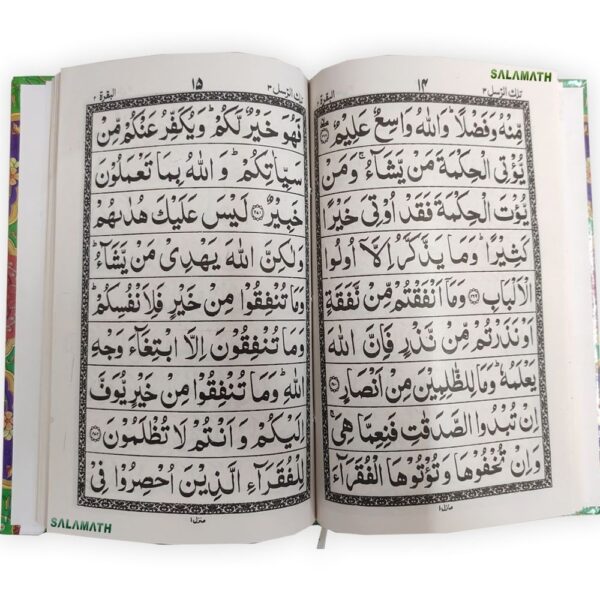 SALAMATH
تلك الرسل ٣
١٤
البقرة ٢
مِّنْهُ وَفَضْلًا ؕ وَاللّٰهُ وَاسِعٌ عَلِيْمٌ ﴿٢٦٨﴾
يُّؤْتِى الْحِكْمَةَ مَنْ يَّشَآءُ ۚ وَمَنْ
يُّؤْتَ الْحِكْمَةَ فَقَدْ اُوْتِىَ خَيْرًا
كَثِيْرًا ؕ وَمَا يَذَّكَّرُ اِلَّاۤ اُولُوا
الْاَلْبَابِ ﴿٢٦٩﴾ وَمَاۤ اَنْفَقْتُمْ مِّنْ نَّفَقَةٍ
اَوْ نَذَرْتُمْ مِّنْ نَّذْرٍ فَاِنَّ اللّٰهَ
يَعْلَمُهٗ ؕ وَمَا لِلظّٰلِمِيْنَ مِنْ اَنْصَارٍ ﴿٢٧٠﴾
اِنْ تُبْدُوا الصَّدَقٰتِ فَنِعِمَّا هِىَ ۚ
وَاِنْ تُخْفُوْهَا وَتُؤْتُوْهَا الْفُقَرَآءَ
منزل ١
تلك الرسل ٣
١٥
البقرة ٢
فَهُوَ خَيْرٌ لَّكُمْ ؕ وَيُكَفِّرُ عَنْكُمْ مِّنْ
سَيِّاٰتِكُمْ ؕ وَاللّٰهُ بِمَا تَعْمَلُوْنَ
خَبِيْرٌ ﴿٢٧١﴾ لَيْسَ عَلَيْكَ هُدٰىهُمْ
وَلٰكِنَّ اللّٰهَ يَهْدِىْ مَنْ يَّشَآءُ ؕ
وَمَا تُنْفِقُوْا مِنْ خَيْرٍ فَلِاَنْفُسِكُمْ ؕ
وَمَا تُنْفِقُوْنَ اِلَّا ابْتِغَآءَ وَجْهِ
اللّٰهِ ؕ وَمَا تُنْفِقُوْا مِنْ خَيْرٍ يُّوَفَّ
اِلَيْكُمْ وَاَنْتُمْ لَا تُظْلَمُوْنَ ﴿٢٧٢﴾
لِلْفُقَرَآءِ الَّذِيْنَ اُحْصِرُوْا فِىْ
منزل ١
SALAMATH